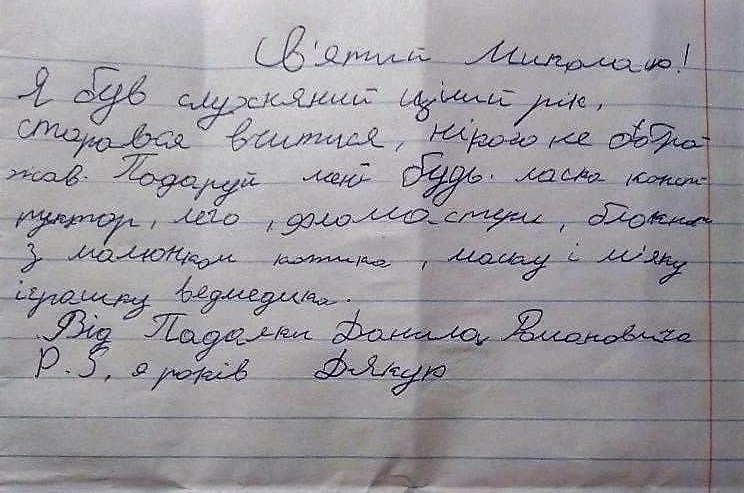 Св'ятий Миколаю!
Я був слухняний цілий рік,
старався вчитися, нікого не обра
жав. Подаруй мені будь. ласка конст
руктор, лего, фломастери, блокнот
з малюнком котика, маску і м'яку
іграшку ведмедика.
Від Падалки Данила Романовича
P.S. я років Дякую